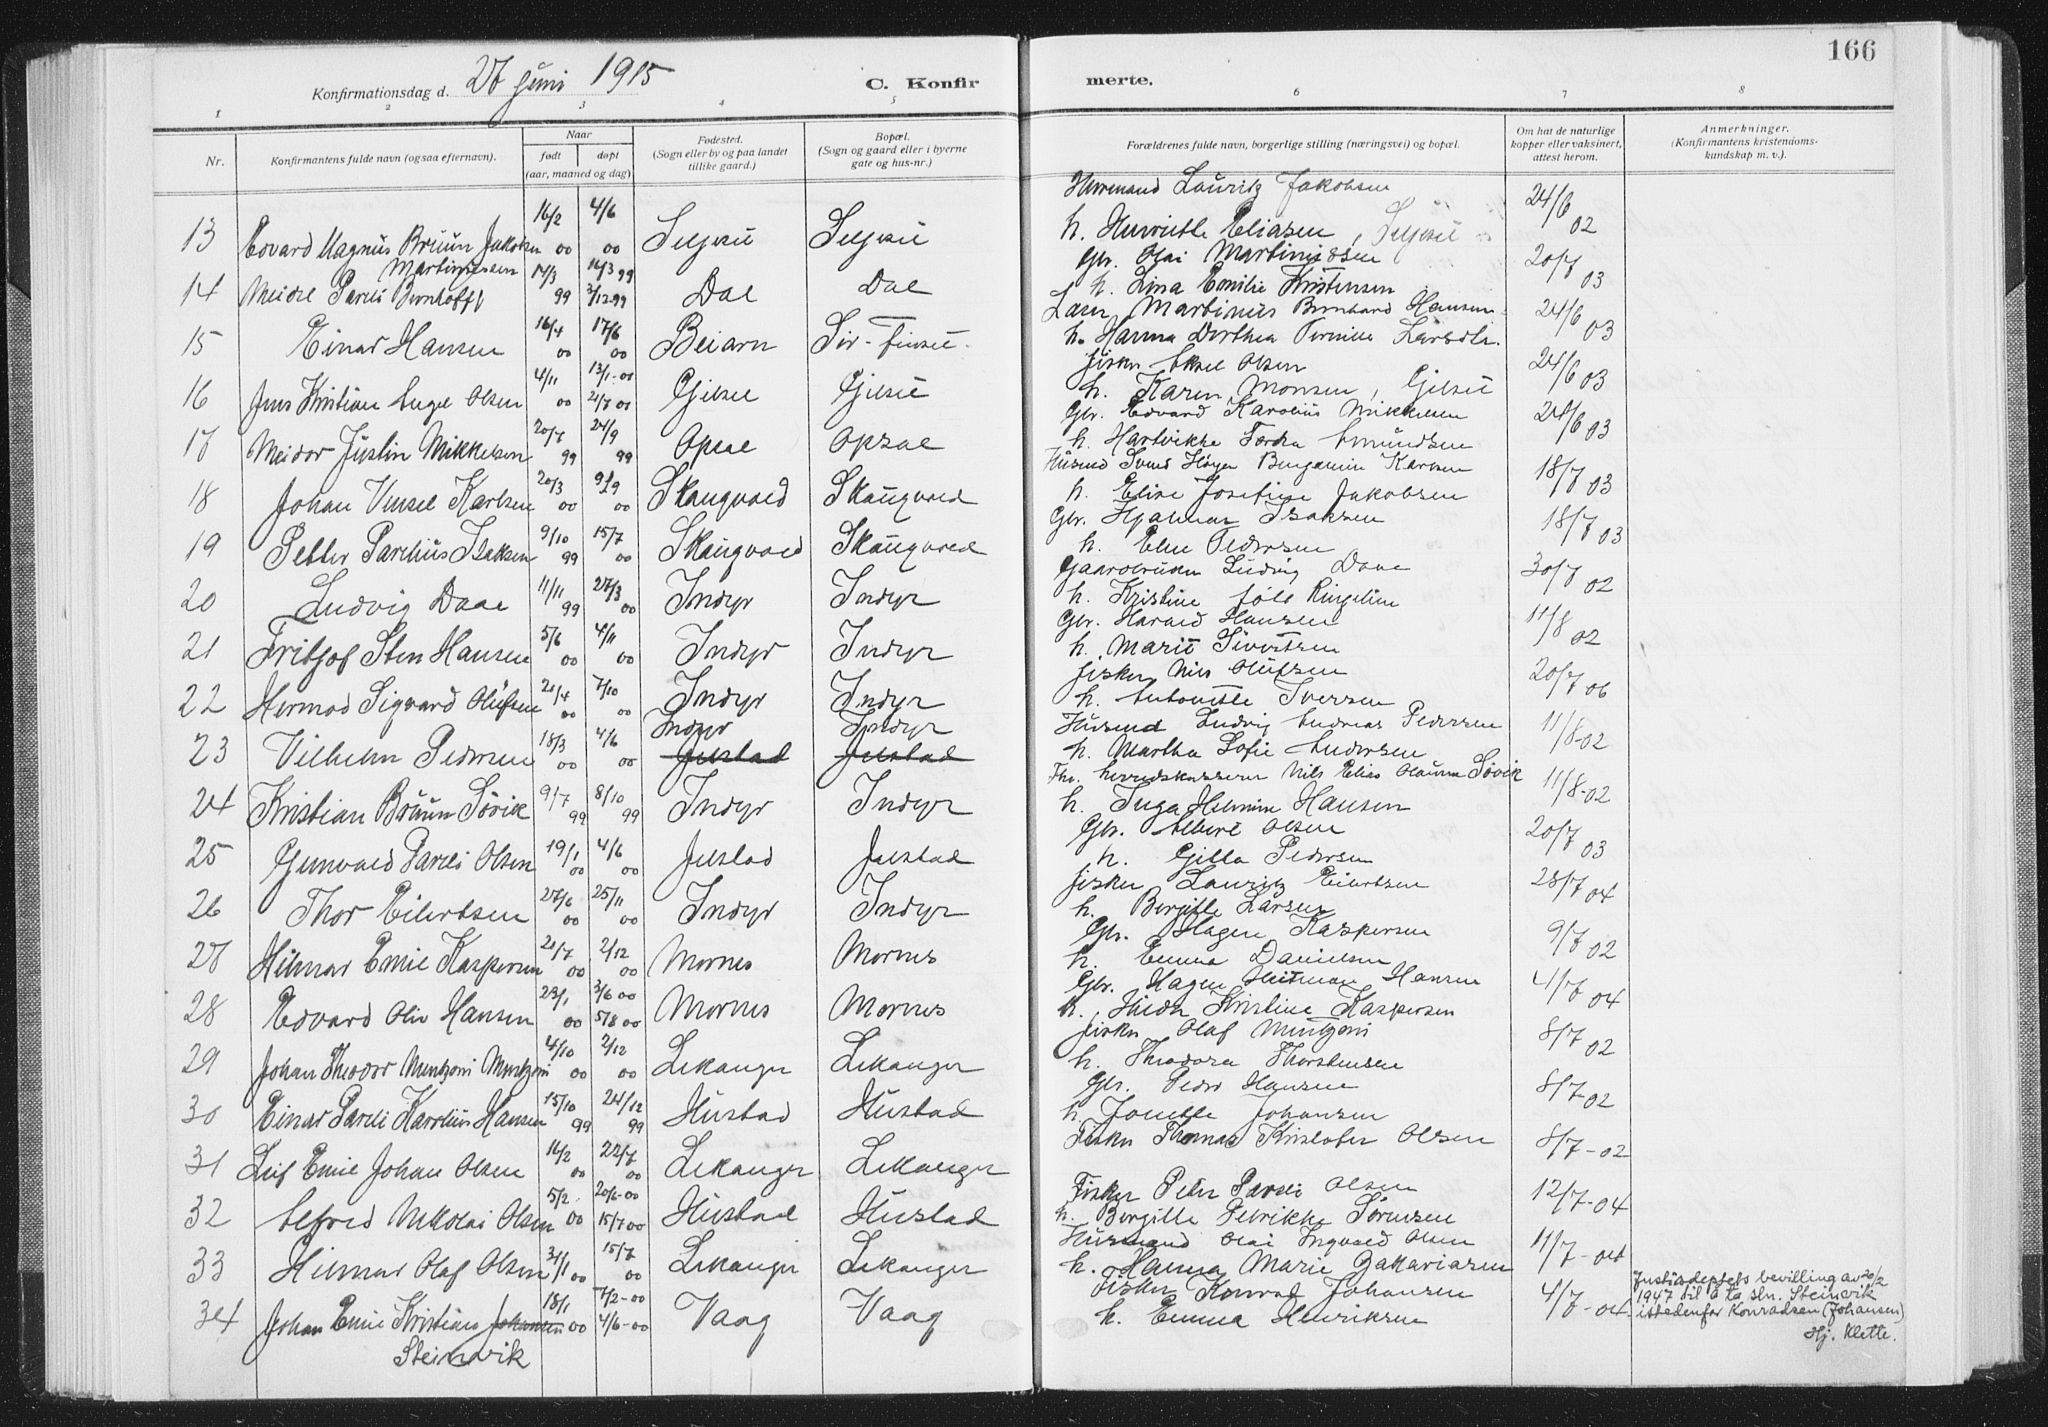 166
Konfirmationsdag d. 27 juni 1915 C. Konfir merte.
1 2 3 4 5 6 7 8
Nr. Konfirmantens fulde navn (ogsaa efternavn). Naar født døpt (aar, maaned og dag) Fødested. (Sogn eller by og paa landet tillike gaard.) Bopæl. (Sogn og gaard eller i byerne gate og hus-nr.) Forældrenes fulde navn, borgerlige stilling (næringsvei) og bopæl. Om hat de naturlige kopper eller vaksinert, attest herom. Anmerkninger. (Konfirmantens kristendoms- kundskap m. v.).
Lauritz Jakobsen
13 Edvard Magnus Bruun Jakobsen 16/2 00 4/6 00 h. Henriette Eliasen, 24/6 02
Martinussen Gbr. Olai Martinussen
14 Meidel Pareli Bernhoft 14/3 99 16/3 99 3/12 99 Dal Dal h. Lina Emilie Kristensen 20/7 03
Martinus Bernhard Hansen
15 Einar Hansen 16/4 00 17/6 00 Beiarn h. Hanna Dorthea Pernille 24/6 03
fisker Aksel Olsen
16 Jens Kristian Angel Olsen 4/11 00 13/1-01 21/7 01 Gjelset h. Karen Monsen, 24/6 03
Gbr. Edvard Karolius Mikkelsen
17 Meidor Justin Mikkelsen 20/7 99 24/9 99 Opsal Opsal h. Hartvikke Amundsen 24/6 03
Husmd Svend Høyer Benjamin Karlsen
18 Johan Vensel Karlsen 20/3 00 9/9 00 Skaugvold Skaugvold h. Elise Josefine Jakobsen 18/7 03
Gbr. Hjalmar Isaksen
19 Petter Parelius Isaksen 9/10 99 15/7 00 Skaugvold Skaugvold h. Eline Pedersen 18/7 03
Gaardbruker Ludvig Daae
20 Ludvig Daae 11/11 99 27/3 00 Indyr Indyr h. Kristine 30/7 02
Gbr. Harald Hansen
21 Fritjof Sten Hansen 5/6 00 4/11 00 Indyr Indyr h. Marit Sivertsen 11/8 02
fisker Nils Olufsen
22 Hermod Sigvard Olufsen 21/4 00 7/10 00 Indyr Indyr h. Antonette Iversen 20/7 06
Indyr Indyr Husmd Ludvig Andreas Pedersen
23 Vilhelm Pedersen 18/3 00 4/6 00 Jelstad Jelstad h. Martha Sofie Andersen 11/8-02
Fhv. herredskasserer Nils Elias Olaus Sørvik
24 Kristian Bruun Sørvik 9/7 99 8/10 99 Indyr Indyr h. Inga Helmine Hansen 11/8-02
Gbr. Albert Olsen
25 Gunvald Pareli Olsen 19/1 00 4/6 00 Jelstad Jelstad h. Gilla Pedersen 20/7 03
fisker Lauritz Eilertsen
26 Thor Eilertsen 27/6 00 25/11 00 Indyr Indyr h. Bergitte Larsen 28/7 04
Gbr. Hagen Kaspersen
27 Hilmar Emil Kaspersen 21/7 00 2/12 00 Mornes Mornes h. Emma Danielsen 9/7 02
Gbr. Hagen Heitman Hansen
28 Edvard Olin Hansen 23/1 00 3/6 00 5/8 00 Mornes Mornes h. Hilda Kristine Kaspersen 4/7 04
fisker Olaf Mentzoni
29 Johan Theodor Mentzoni Mentzoni 4/10 00 2/12 00 Lekanger Lekanger h. Theodora Thorstensen 8/7 02
Gbr. Peder Hansen
30 Einar Pareli Karelius Hansen 15/10 99 24/12 99 Hustad Hustad h. Jonette Johansen 8/7-02
Fisker Thomas Kristofer Olsen
31 Leif Emil Johan Olsen 16/2 00 22/7 00 Lekanger Lekanger 8/7-02
Fisker Peter Pareli Olsen
32 Alfred Nikolai Olsen 5/2 00 20/6-00 15/7 00 Hustad Hustad h. Bergitte Petrikke Sørensen 12/7-04
Husmand Olai Ingvald Olsen
33 Hilmar Olaf Olsen 31/1 00 15/7 00 Lekanger Lekanger h. Hanna Marie Zakariasen 11/7-04
fisker Konrad Johansen
34 Johan Emil Kristian Johansen 18/1 00 7/2-00 4/6-00 Vaag Vaag h. Emma Henriksen 4/7-04
Steinvik
Justisdeptets bevilling av 20/2
1947 til å ta sln. Steinvik
istedenfor Konradsen (Johansen)
Hj. Klette.